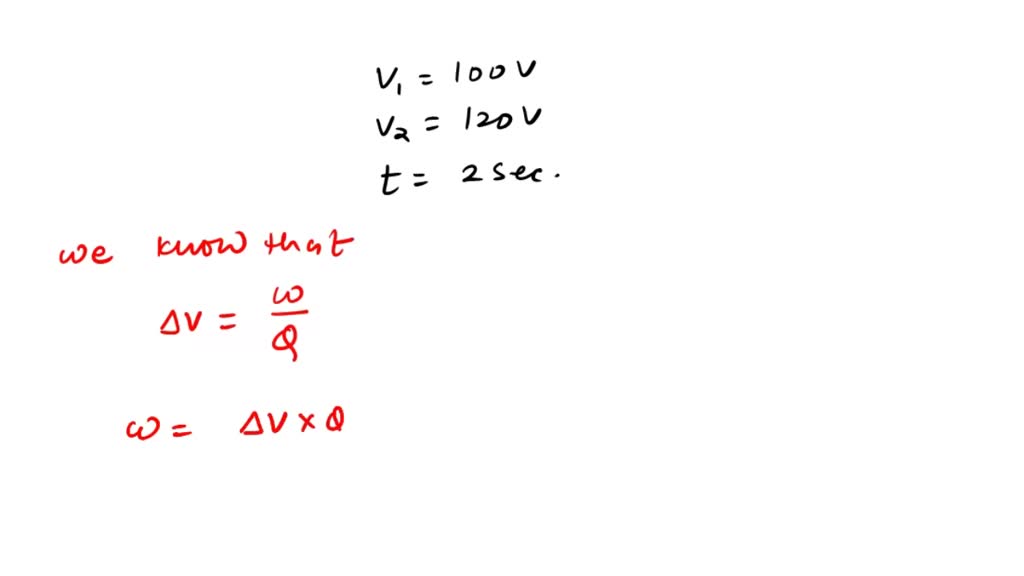 V₁ = 100 V
V₂ = 120 V
t = 2 sec.
we know that
ΔV = w/Q
w = ΔV × Q